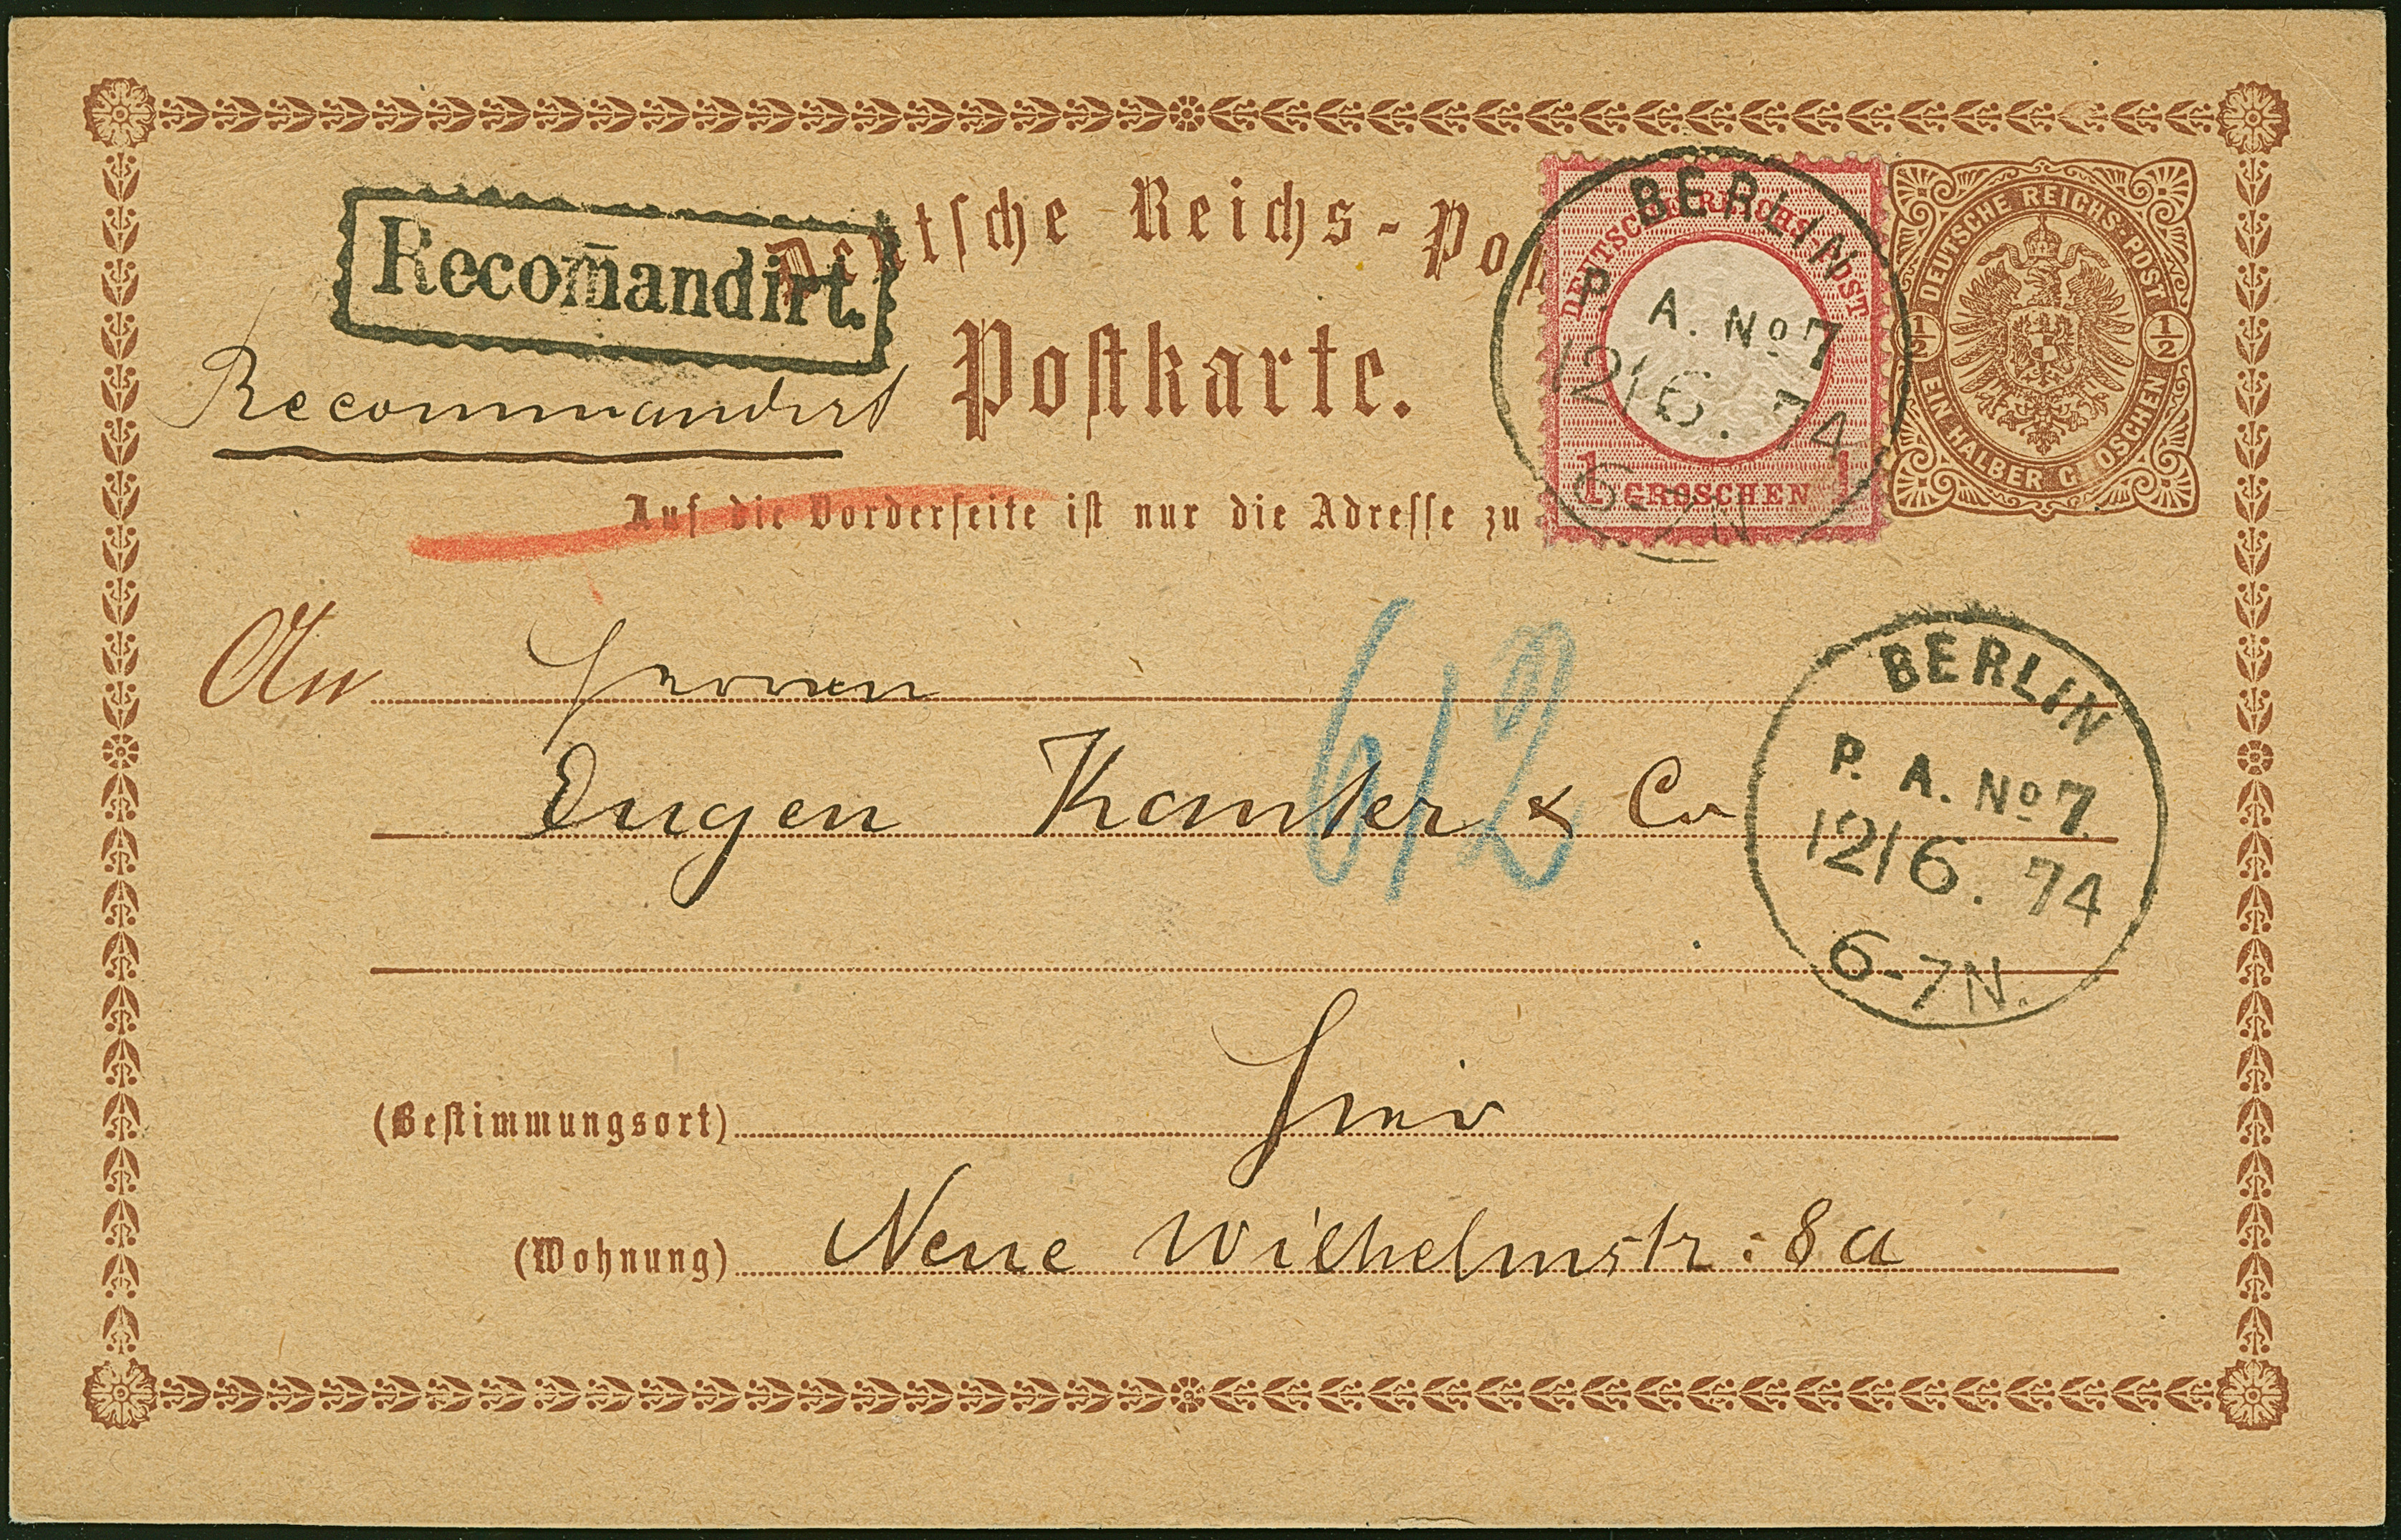 Deutsche Reichs-Po
Recom̄andirt.
Postkarte.
Recommandirt
Auf die Vorderseite ist nur die Adresse zu
DEUTSCHE REICHS-POST
1 GROSCHEN 1
BERLIN
P. A. No 7
12/6. 74
6-7N.
DEUTSCHE REICHS-POST
1/2 1/2
EIN HALBER GROSCHEN
An Herren
612
Eugen Kanter & Co
BERLIN
P. A. No 7.
12/6. 74
6-7N.
(Bestimmungsort) hier
(Wohnung) Neue Wilhelmstr: 8a